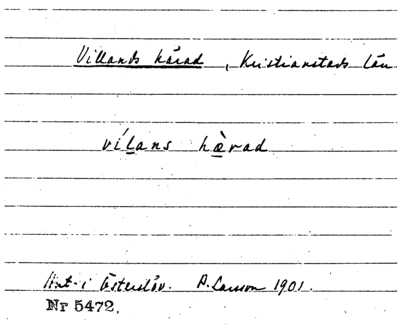 Villands härad, Kristianstads län
vílans hæ̀rad
Ant. i Österslöv. A. Larsson 1901.
Nr 5472.